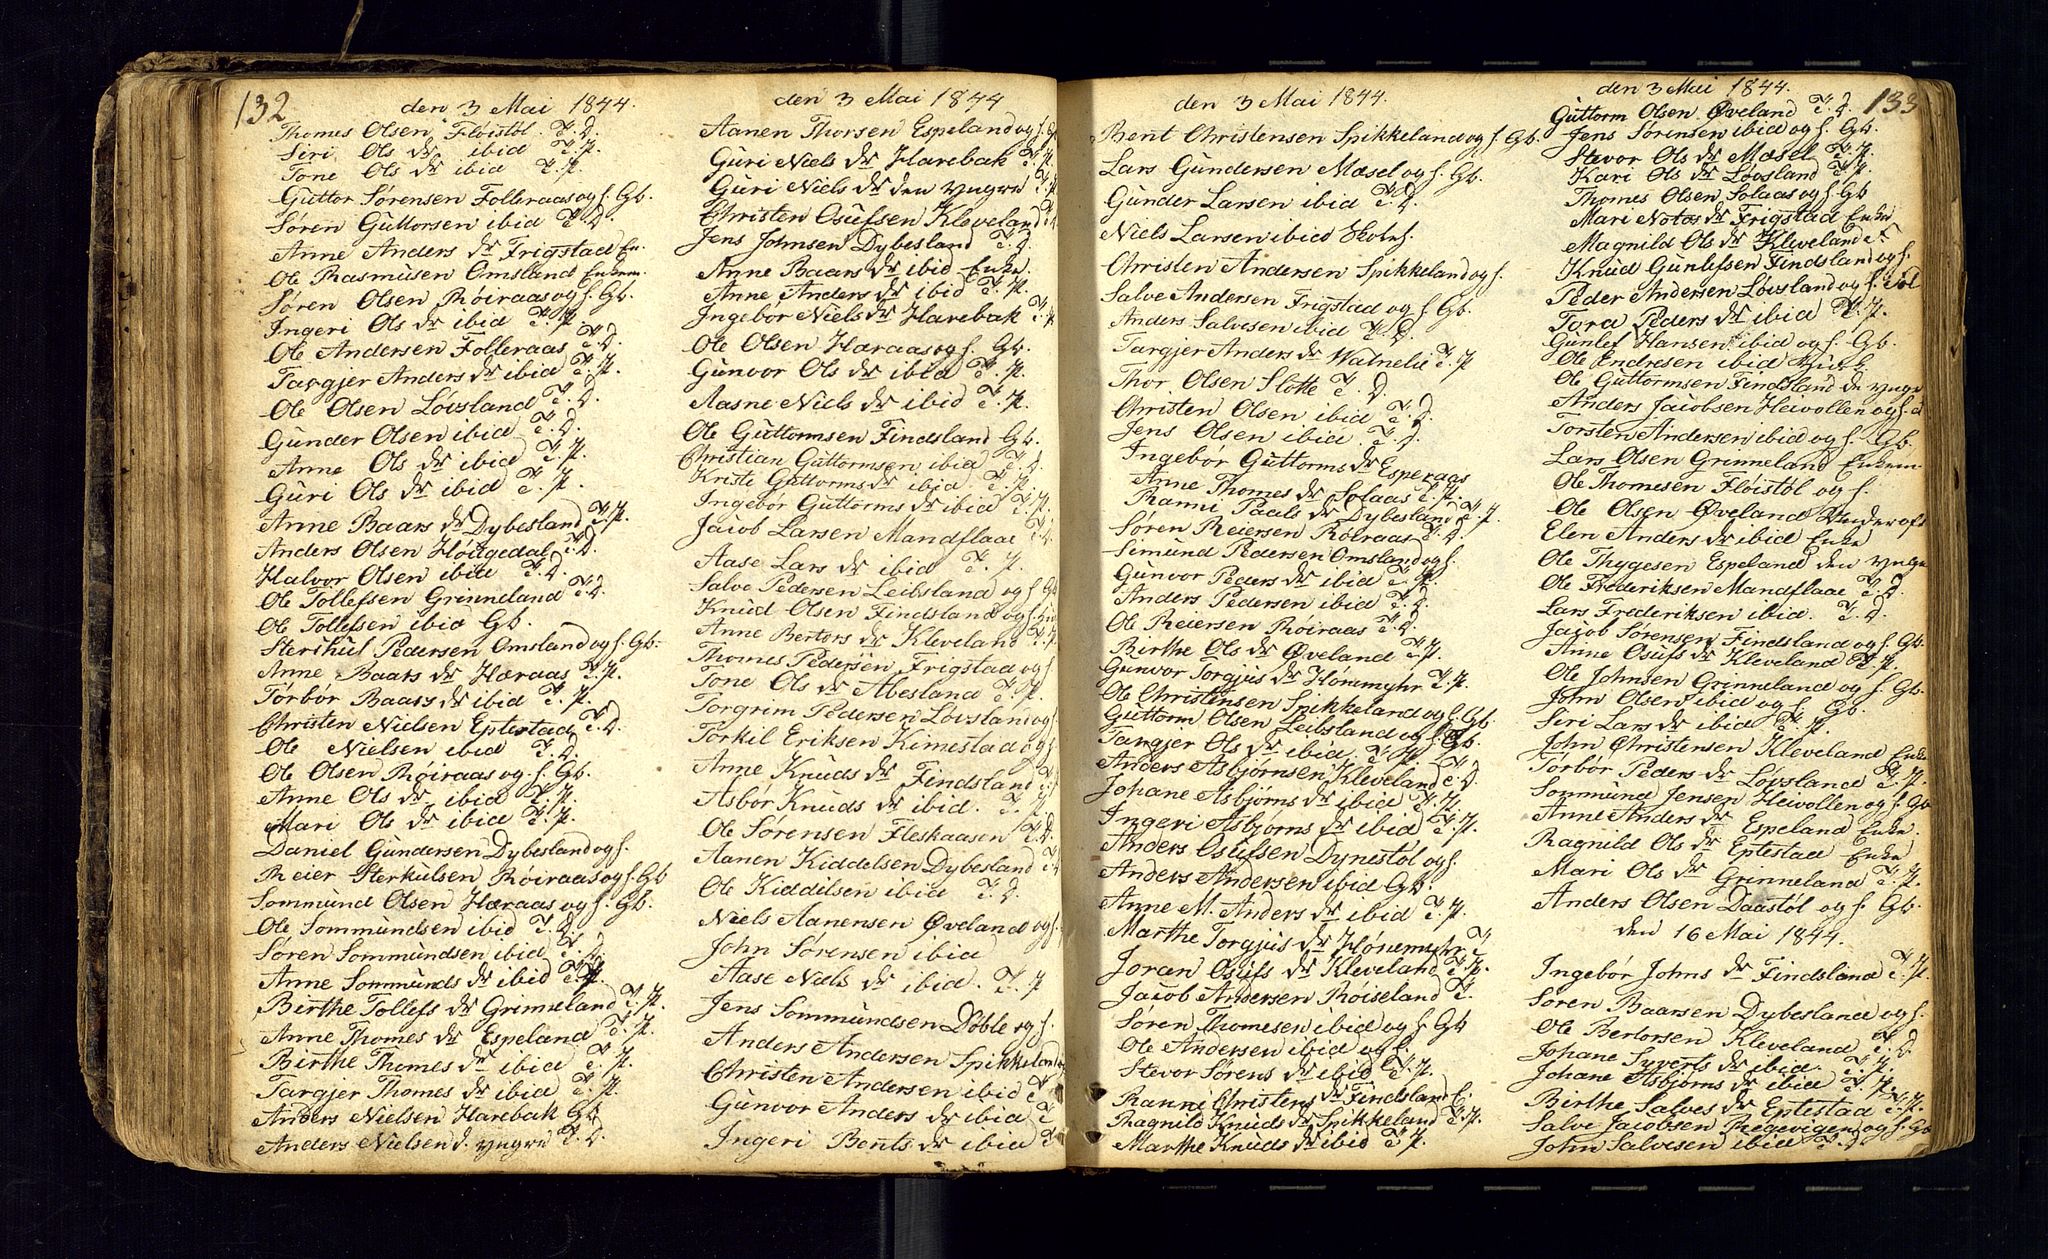 132
den 3 Mai 1844.
Thomes Olsen Fløistøl. T. D.
Siri Ols dr ibid T. P.
Tone Ols dr ibid T. P.
Guttor Sørensen Folleraas og f. Gb.
Søren Guttorsen ibid T. D.
Anne Anders dr Frigstad En.
Ole Rasmusen Omsland Enkem.
Søren Olsen Røiraas og f. Gb.
Ingeri Ols dr ibid T. P.
Ole Andersen Folleraas T. D.
Targjer Anders dr ibid T. P.
Ole Olsen Løvsland T. D.
Gunder Olsen ibid T. D.
Anne Ols dr ibid T. P.
Guri Ols dr ibid T. P.
Anne Baars dr Dybesland T. P.
Anders Olsen Høigedal T. D.
Halvor Olsen ibid T. D.
Ole Tollefsen Grinneland T. D.
Ole Tollefsen ibid Gb.
Sterchul Pedersen Omsland og f. Gb.
Anne Baars dr Hæraas T. P.
Tørbør Baars dr ibid T. P.
Christen Nielsen Eptestad T. D.
Ole Nielsen ibid T. D.
Ole Olsen Røiraas og f. Gb.
Anne Ols dr ibid T. P.
Mari Ols dr ibid T. P.
Daniel Gundersen Dybesland og f.
Reier Sterkulsen Røiraas og f. Gb
Sommund Olsen Hæraas og f. Gb.
Ole Sommundsen ibid T. D.
Søren Sommundsen ibid T. D.
Anne Sommunds dr ibid T. P.
Birthe Tollefs dr Grinneland T. P.
Anne Thomes dr Espeland T. P.
Birthe Thomes dr ibid T. P.
Targjer Thomes dr ibid T. P.
Anders Nielsen Harebak Gb
Anders Nielsen d. yngre T. D.
den 3 Mai 1844
Aanen Thorsen Espeland og f. G
Guri Niels dr Harebak T. P.
Guri Niels dr den yngre T. P
Christen Osufsen Kleveland T. D
Jens Johnsen Dybesland T. D.
Anne Baars dr ibid Enke.
Anne Anders dr ibid T. P.
Ingebor Niels dr Harebak T. P
Ole Olsen Hæraas og f. Gb.
Gunvor Ols dr ibid T. P.
Aasne Niels dr ibid T. P.
Ole Guttormsen Findsland Gb.
Christian Guttormsen ibid T. D.
Kriste Guttorms dr ibid T. P.
Ingebør Guttorms dr ibid T. P.
Jacob Larsen Mandflaae T. D.
Aase Lars dr ibid T. P.
Salve Pedersen Leibsland og f Gb
Knud Olsen Findsland og f.
Anne Bertors dr Kleveland T. P
Thomes Pedersen Frigstad og f
Tone Ols dr Abesland T. P.
Torgrim Pedersen Løvsland og f.
Torkil Eriksen Kimestad og f
Anne Knuds dr Findsland T. P
Asbør Knuds dr ibid. T. P.
Ole Sørensen Fleskaasen T. D.
Aanen Kiddelsen Dybesland T. D
Ole Kiddilsen ibid T. D.
Niels Aanensen Øveland og f.
John Sørensen ibid
Aase Niels dr ibid. T. P
Jens Sommundsen Døble og f.
Anders Andersen Spikkeland og
Christen Andersen ibid T.
Gunvor Anders dr ibid T
Ingeri Bents dr ibid T
den 3 Mai 1844.
Bent Christensen Spikkeland og f. Gb.
Lars Gundersen Mæsel og f. Gb.
Gunder Larsen ibid T. D.
Niels Larsen ibid Skolh.
Christen Andersen Spikkeland og f.
Salve Andersen Frigstad og f Gb.
Anders Salvesen ibid T. D.
Targjer Anders dr Watnelie T. P
Thor Olsen Slotte T. D.
Christen Olsen ibid T. D.
Jens Olsen ibid. T. D.
Ingebør Guttorms dr Esperaas
Anne Thomes dr Solaas T. P.
Ranni Paals dr Dybesland T. P.
Søren Reiersen Røiraas T. D.
Simund Pedersen Omsland og f.
Gunvor Peders dr ibid T. P.
Anders Pedersen ibid T. D.
Ole Reiersen Røiraas T. D.
Birthe Ols dr Øveland T. P.
Gunvor Torgjus dr Hønnmyhr T. P.
Ole Christensen Spikkeland og f. Gb.
Guttorm Olsen Leibsland og f. Gb.
Targjer Ols dr ibid. T. P.
Anders Asbjørnsen Kleveland T. D.
Johane Asbjørns dr ibid T. P.
Ingeri Asbjørns dr ibid T. P.
Anders Osufsen Dynestøl og f.
Anders Andersen ibid Gb.
Anne M. Anders dr ibid T. P.
Marthe Torgjus dr Hønemyhr T
Joran Osufs dr Kleveland T. P.
Jacob Andersen Røiseland T.
Søren Thomesen ibid og f Gb
Ole Andersen ibid og f.
Stevor Sørens dr ibid T. P.
Ranni Christens dr Findsland E.
Ragnild Knuds dr Spikkeland T. P.
Marthe Knuds dr ibid T. P.
133
den 3 Mai 1844.
Guttorm Olsen Øveland T. D.
Jens Sørensen ibid og f. Gb.
Stevor Ols dr Mæsel T. P.
Kari Ols dr Løvsland T. P.
Thomes Olsen Solaas og f. Gb
Mari Notos dr Frigstad Enke
Magnild Ols dr Kleveland
Knud Gunlefsen Findsland og f
Peder Andersen Løvsland og f.
Tora Peders dr ibid T. P.
Gunlef Hansen ibid og f. Gb.
Ole Endresen ibid
Ole Guttormsen Findsland de yngre
Anders Jacobsen Heivollen og f.
Torsten Andersen ibid og f. Gb.
Lars Olsen Grinneland Enkem
Ole Thomesen Fløistøl og f.
Ole Olsen Øveland Underofs
Elen Anders dr ibid Enke
Ole Thygesen Espeland den yngre
Ole Frederiksen Mandflaae T. D.
Lars Frederiksen ibid. T. D.
Jacob Sørensen Findsland og f. Gb.
Anne Osufs dr Kleveland T. P.
Ole Johnsen Grinneland og f. Gb.
John Olsen ibid og f. Gb.
Siri Lars dr ibid T. P.
John Christensen Kleveland Enke
Tørbør Peders dr Løvsland T. P.
Sommund Jensen Heivollen og f. Gb
Anne Anders dr Espeland Enke.
Ragnild Ols dr Eptestad Enke
Mari Ols dr Grinneland T. P.
Anders Olsen Daastøl og f. Gb.
den 16 Mai 1844.
Ingebør Johns dr Findsland T. P.
Søren Baarsen Dybesland og f.
Ole Bertorsen Kleveland T. D
Johane Syverts dr ibid. T. P.
Johane Asbjørns dr ibid T. P.
Berthe Salves dr Eptestad T. P.
Salve Jacobsen Regevigen og f. Gb
John Salvesen ibid T. D.